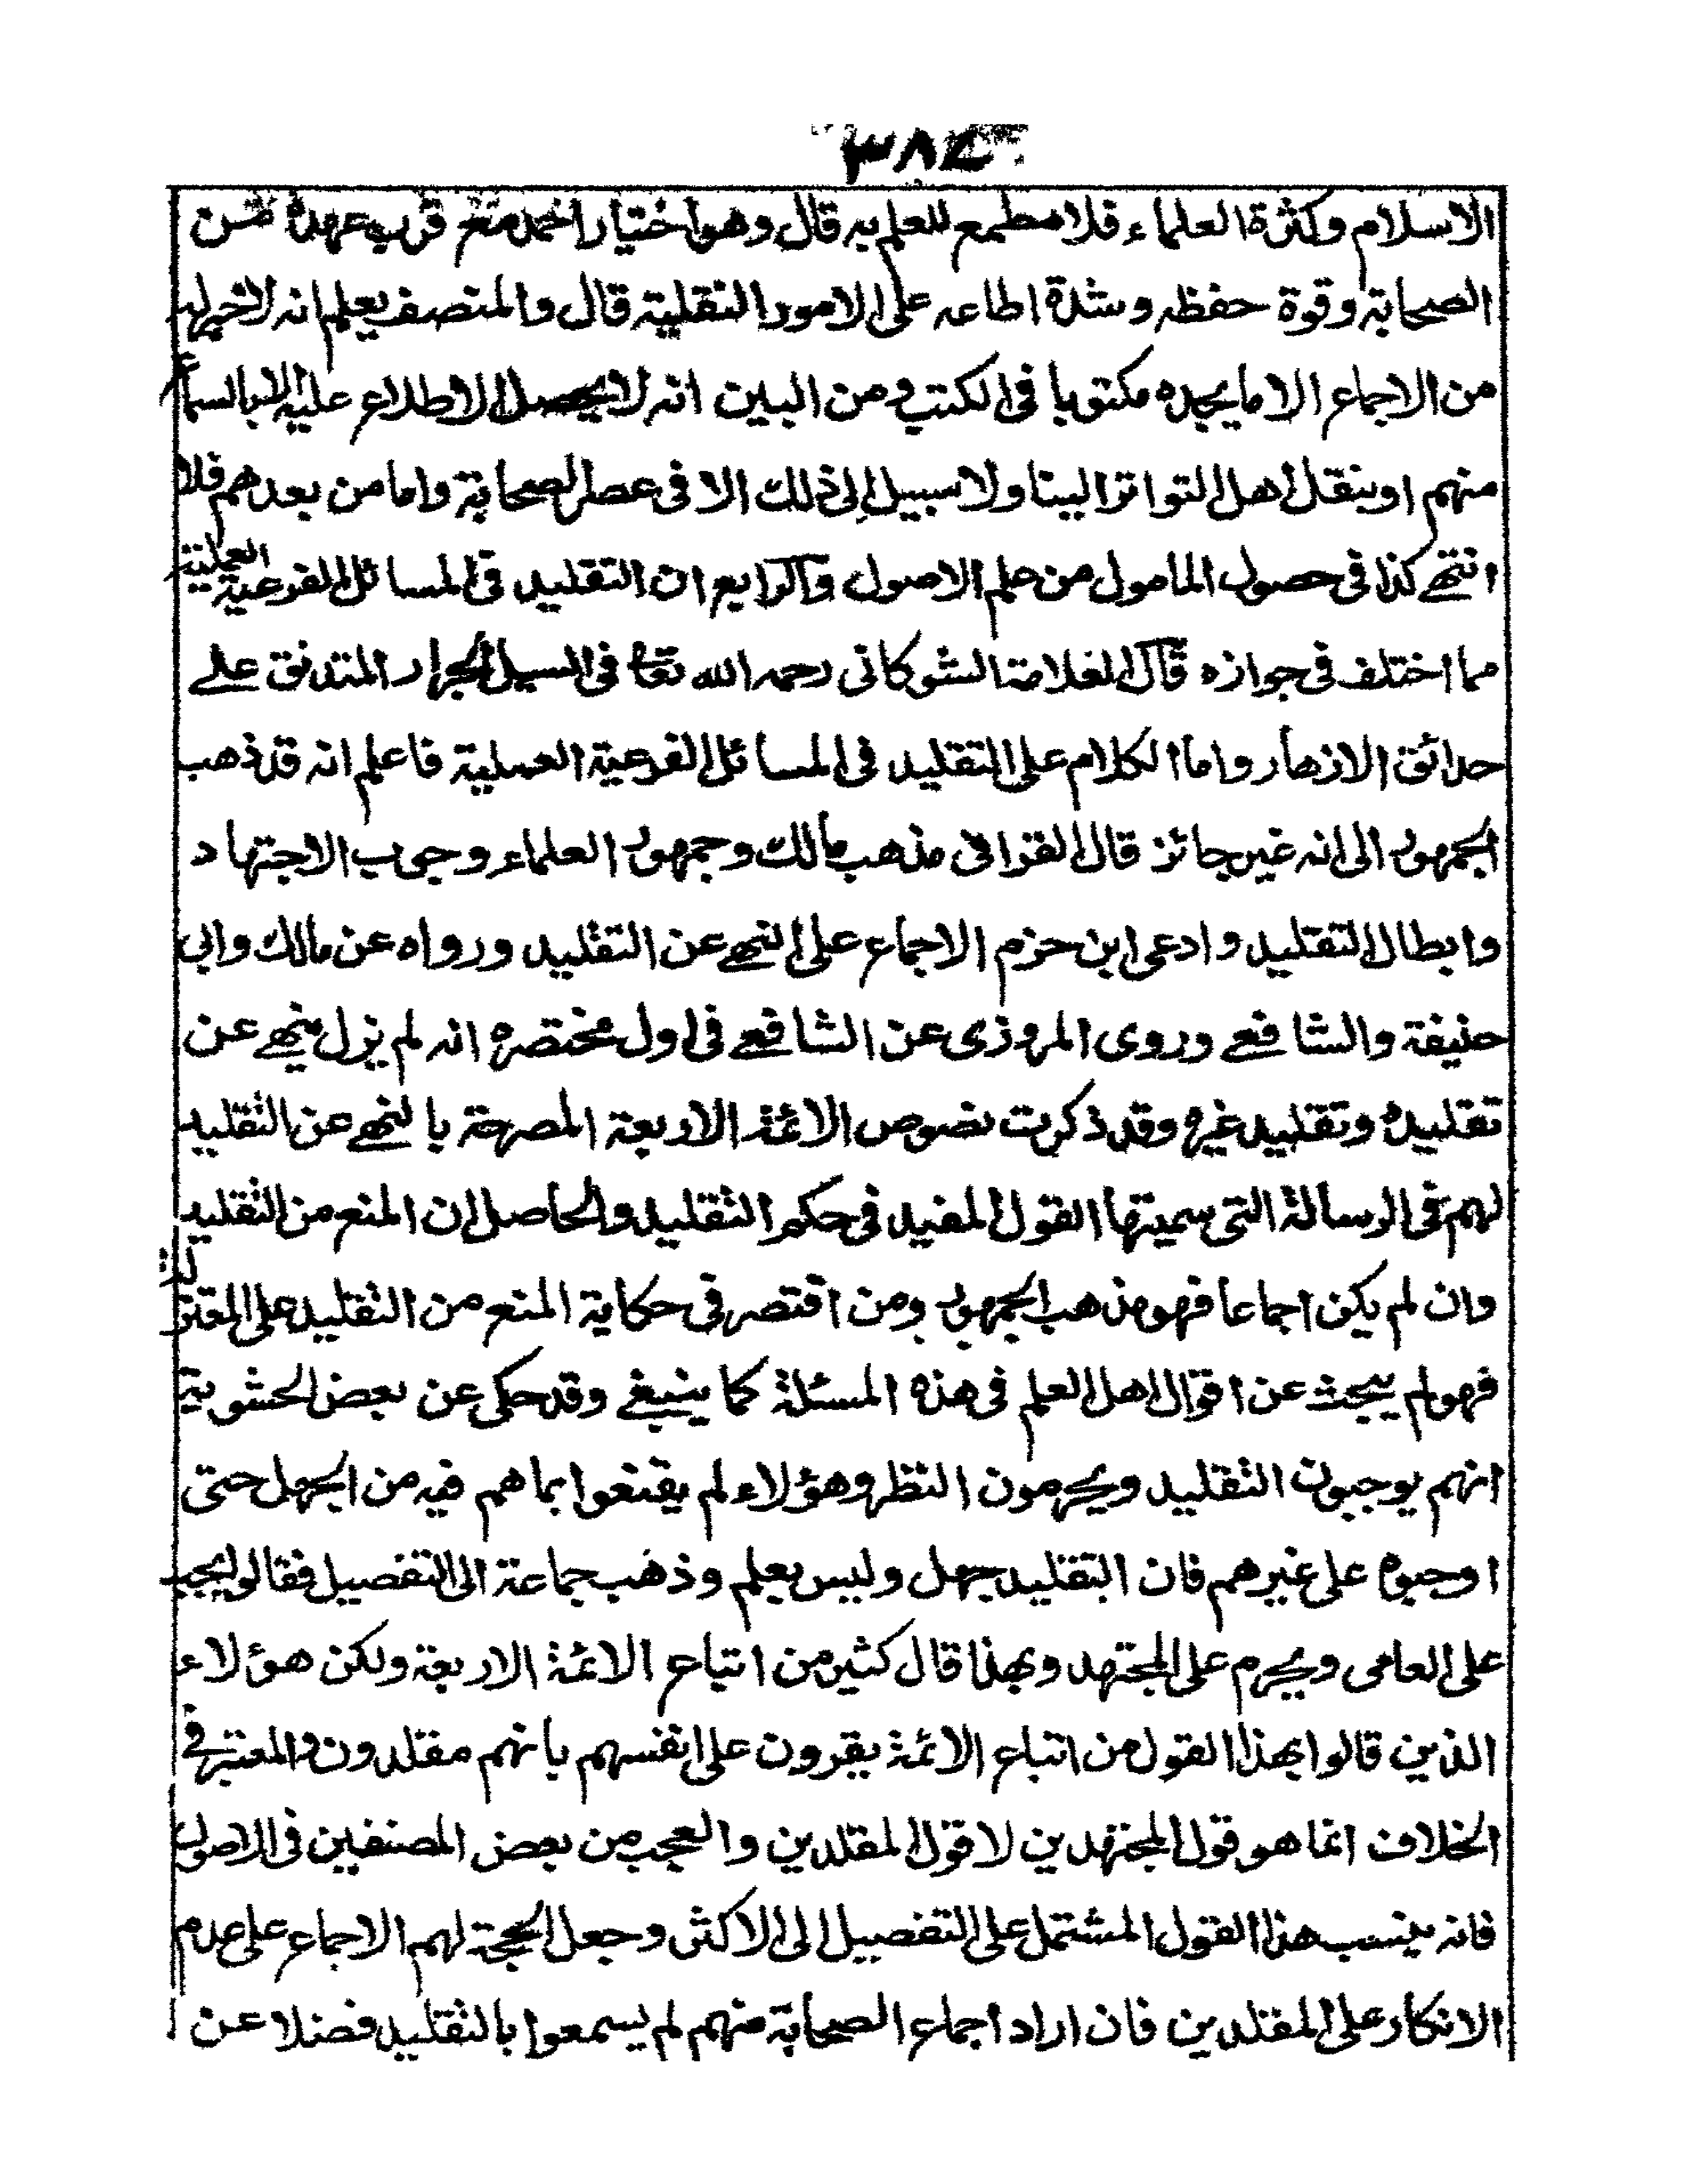 ٣٨٤
الاسلام وكثرة العلماء فلا مطمع للعلم به قال وهو اختيار احمد مع قرب عهده من
الصحابة وقوة حفظه وشدة اطاعه على الامور النقلية قال والمنصف يعلم انه لا خبر له
من الاجماع الا ما يجده مكتوبا فى الكتب ومن البين انه لا يحصل الاطلاع عليه الا بالسماع
منهم او بنقل اهل التواتر الينا ولا سبيل الى ذلك الا فى عصر الصحابة واما من بعدهم فلا
انتهے كذا فى حصول المامول من علم الاصول والرابع ان التقليد فى المسائل الفرعية العملية
مما اختلف فى جوازه قال العلامة الشوكانى رحمه الله تعا فى السيل الجرار المتدفق علے
حدائق الازهار واما الكلام على التقليد فى المسائل الفرعية العملية فاعلم انه قد ذهب
الجمهور الى انه غير جائز قال القرافى مذهب مالك وجمهور العلماء وجوب الاجتهاد
وابطال التقليد وادعى ابن حزم الاجماع على النهے عن التقليد ورواه عن مالك وابى
حنيفة والشافعے وروى المروذى عن الشافعے فى اول مختصره انه لم يزل ينهے عن
تقليده وتقليد غيره وقد ذكرت نصوص الائمة الاربعة المصرحة بالنهے عن التقليد
لهم فى الرسالة التى سميتها القول المفيد فى حكم التقليد والحاصل ان المنع من التقليد
وان لم يكن اجماعا فهو مذهب الجمهور ومن اقتصر فى حكاية المنع من التقليد على المعتزلة
فهو لم يبحث عن اقوال اهل العلم فى هذه المسئلة كما ينبغے وقد حكى عن بعض الحشوية
انهم يوجبون التقليد ويحرمون النظر وهؤلاء لم يقنعوا بما هم فيه من الجهل حتى
اوجبوه على غيرهم فان التقليد جهل وليس بعلم وذهب جماعة الى التفصيل فقالوا يجب
على العامى ويحرم على المجتهد وبهذا قال كثير من اتباع الائمة الاربعة ولكن هؤلاء
الذين قالوا بهذا القول من اتباع الائمة يقرون على انفسهم بانهم مقلدون والمعتبر فے
الخلاف انما هو قول المجتهدين لا قول المقلدين والعجب من بعض المصنفين فى الاصول
فانه ينسب هذا القول المشتمل على التفصيل الى الاكثر وجعل الحجة لهم الاجماع على عدم
الانكار على المقلدين فان اراد اجماع الصحابة منهم لم يسمعوا بالتقليد فضلا عن